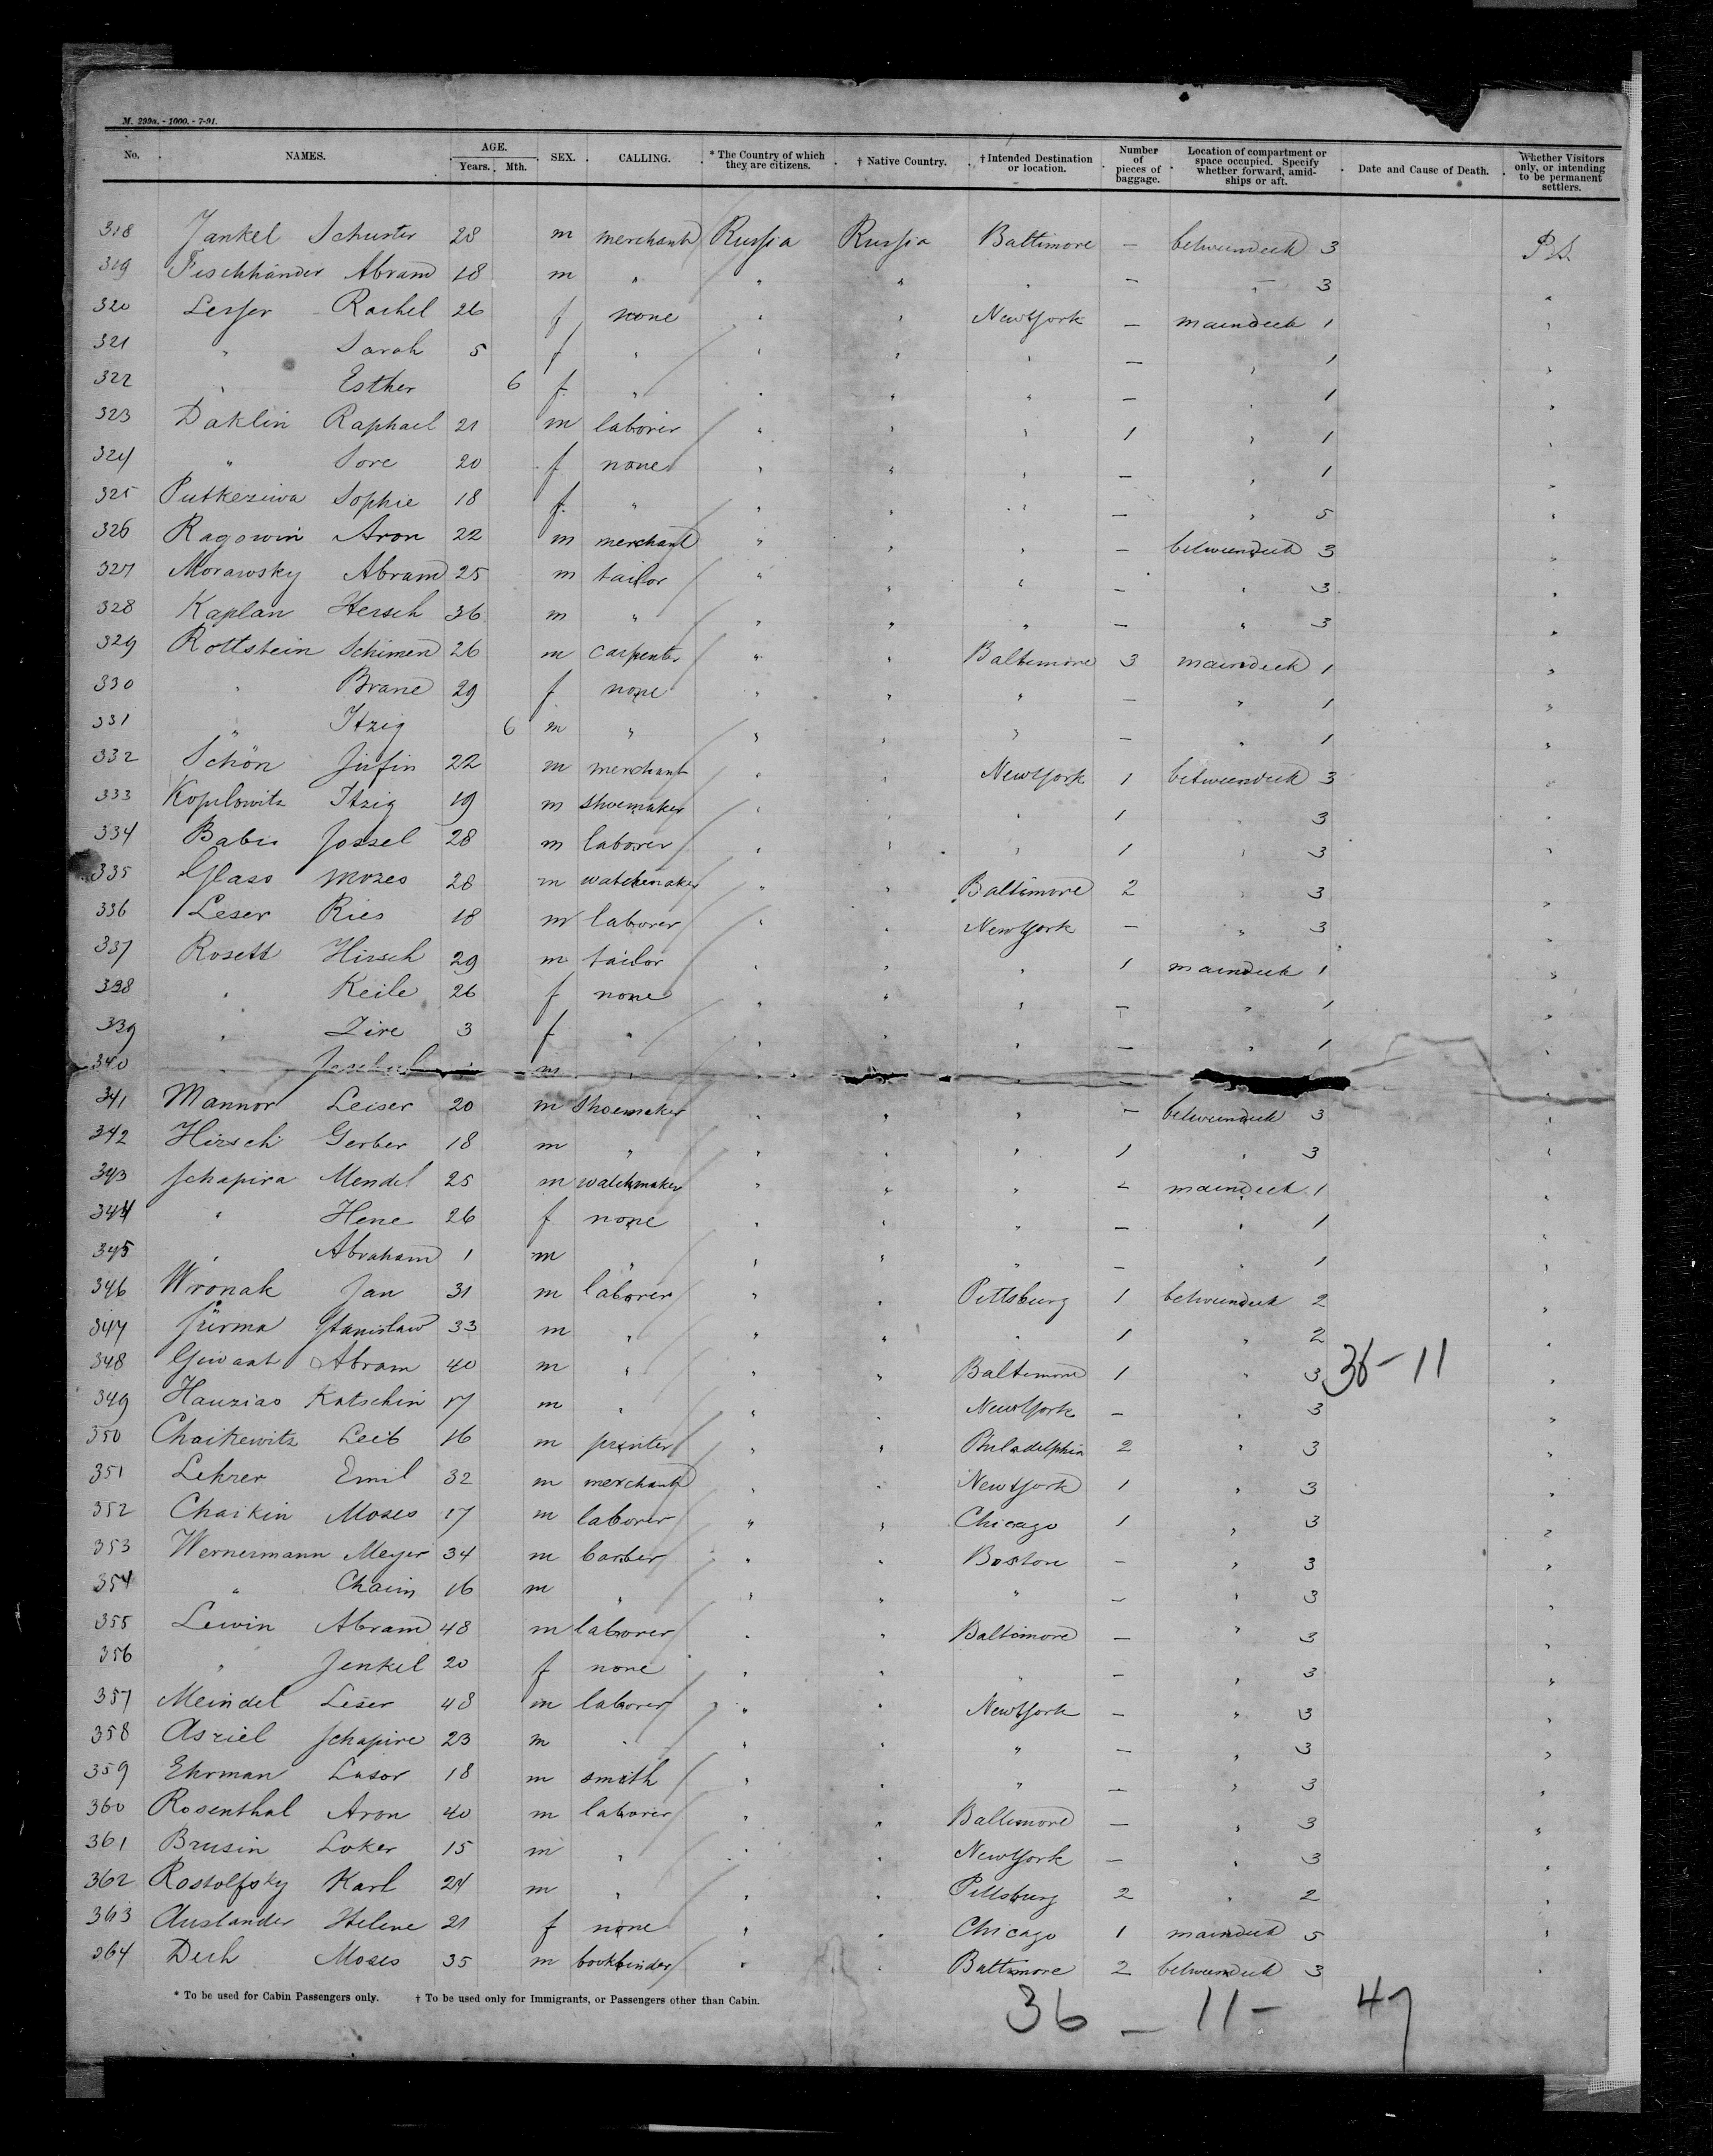 M. 299a. - 1000. - 7-91.
No. NAMES. AGE. Years. Mth. SEX. CALLING. * The Country of which they are citizens. † Native Country. † Intended Destination or location. Number of pieces of baggage. Location of compartment or space occupied. Specify whether forward, amidships or aft. Date and Cause of Death. Whether Visitors only, or intending to be permanent settlers.
318 Jankel Schuster 28 m merchant Russia Russia Baltimore — betweendeck 3 P.S.
319 Fischhänder Abram 18 m " " " " — " 3 "
320 Lesser Rachel 26 f none " " New York — maindeck 1 "
321 " Sarah 5 f " " " " — " 1 "
322 " Esther 6 f " " " " — " 1 "
323 Daklin Raphael 21 m laborer " " " 1 " 1 "
324 " Sore 20 f none " " " — " 1 "
325 Sophie 18 f " " " " — " 5 "
326 Ragowin Aron 22 m merchant " " " — betweendeck 3 "
327 Morawsky Abram 25 m tailor " " " — " 3 "
328 Kaplan Hersch 36 m " " " " — " 3 "
329 Rottstein Schimen 26 m carpenter " " Baltimore 3 maindeck 1 "
330 " Brane 29 f none " " " — " 1 "
331 " Itzig 6 m " " " " — " 1 "
332 Schön 22 m merchant " " New York 1 betweendeck 3 "
333 Kopelowitz Itzig 19 m shoemaker " " " 1 " 3 "
334 Jossel 28 m laborer " " " 1 " 3 "
335 Glass Mozes 28 m watchmaker " " Baltimore 2 " 3 "
336 Leser Ries 18 m laborer " " New York — " 3 "
337 Rosett Hirsch 29 m tailor " " " 1 maindeck 1 "
338 " Keile 26 f none " " " — " 1 "
339 " Zire 3 f " " " " — " 1 "
340 " m " " " " —
341 Mannor Leiser 20 m shoemaker " " " — betweendeck 3 "
342 Hirsch Gerber 18 m " " " " 1 " 3 "
343 Schapira Mendel 25 m watchmaker " " " maindeck 1 "
344 " Hene 26 f none " " " — " 1 "
345 " Abraham 1 m " " " " — " 1 "
346 Wronak Jan 31 m laborer " " Pittsburg 1 betweendeck 2 "
347 Stanislaw 33 m " " " " 1 " 2 "
348 Abram 40 m " " " Baltimore 1 " 3 36-11 "
349 Katschin 17 m " " " New York — " 3 "
350 Chaikewitz Leib 16 m printer " " Philadelphia 2 " 3 "
351 Lehrer Emil 32 m merchant " " New York 1 " 3 "
352 Chaikin Moses 17 m laborer " " Chicago 1 " 3 "
353 Wernermann Meyer 34 m barber " " Boston — " 3 "
354 " Chaim 16 m " " " " — " 3 "
355 Lewin Abram 48 m laborer " " Baltimore — " 3 "
356 " Jenkel 20 f none " " " — " 3 "
357 Meindel Leser 48 m laborer " " New York — " 3 "
358 Asriel Schapire 23 m " " " " — " 3 "
359 Ehrman Lasor 18 m smith " " " — " 3 "
360 Rosenthal Aron 40 m laborer " " Baltimore — " 3 "
361 Brusin Loker 15 m " " " New York — " 3 "
362 Rostolfsky Karl 24 m " " " Pittsburg 2 " 2 "
363 Auslander Helene 21 f none " " Chicago 1 maindeck 5 "
364 Moses 35 m bookbinder " " Baltimore 2 betweendeck 3 "
* To be used for Cabin Passengers only. † To be used only for Immigrants, or Passengers other than Cabin.
36 — 11 — 47